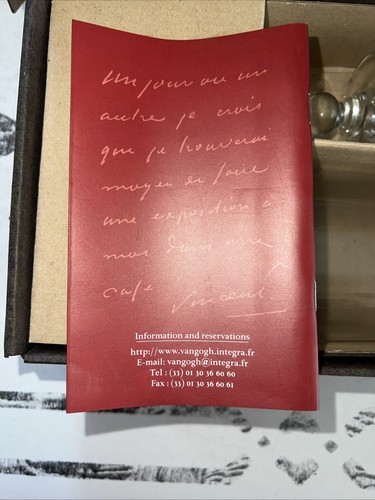 Un jour ou un
autre je crois
que je trouverai
moyen de faire
une exposition à
moi dans un
café
Vincent
Information and reservations
http://www.vangogh.integra.fr
E-mail: vangogh@integra.fr
Tel : (33) 01 30 36 60 60
Fax : (33) 01 30 36 60 61